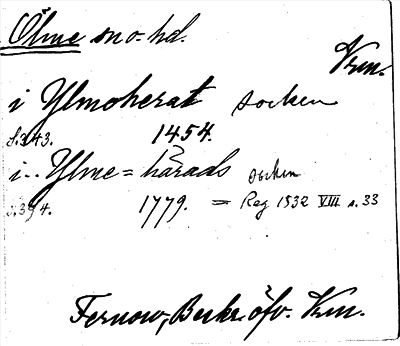 Ölme sn o. hd.
Vrm.
i Ylmoherat socken
s. 343. 1454.
i .. Ylme = härads socken
s. 394. 1779. = Reg 1532 VIII s. 33
Fernow, Beskr. öfv. Vrm.